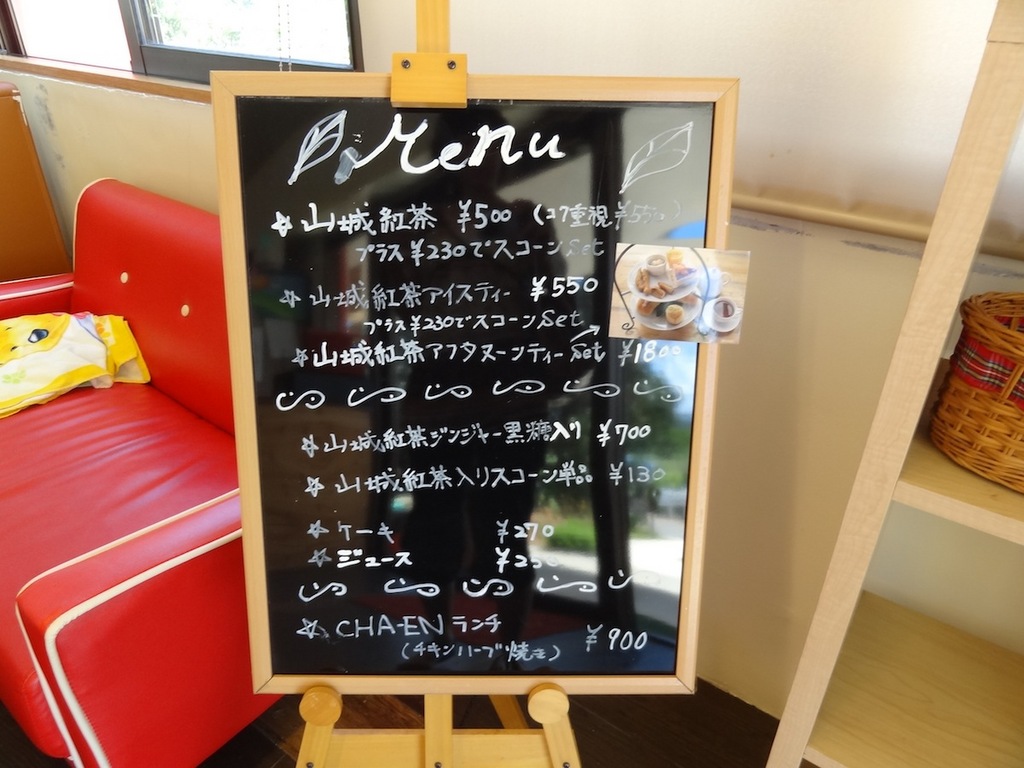 Menu
☆山城紅茶 ¥500 (コク重視 ¥550)
プラス¥230でスコーンSet
☆山城紅茶アイスティー ¥550
プラス¥230でスコーンSet
☆山城紅茶アフタヌーンティーSet ¥1800
☆山城紅茶ジンジャー黒糖入り ¥700
☆山城紅茶入リスコーン単品 ¥130
☆ケーキ ¥270
☆ジュース ¥250
☆CHA-ENランチ ¥900
(チキンハーブ焼き)